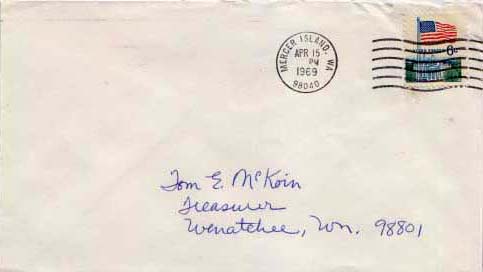 MERCER ISLAND, WA
APR 15
PM
1969
98040
6c
Tom E. McKoin
Treasurer
Wenatchee, Wn. 98801